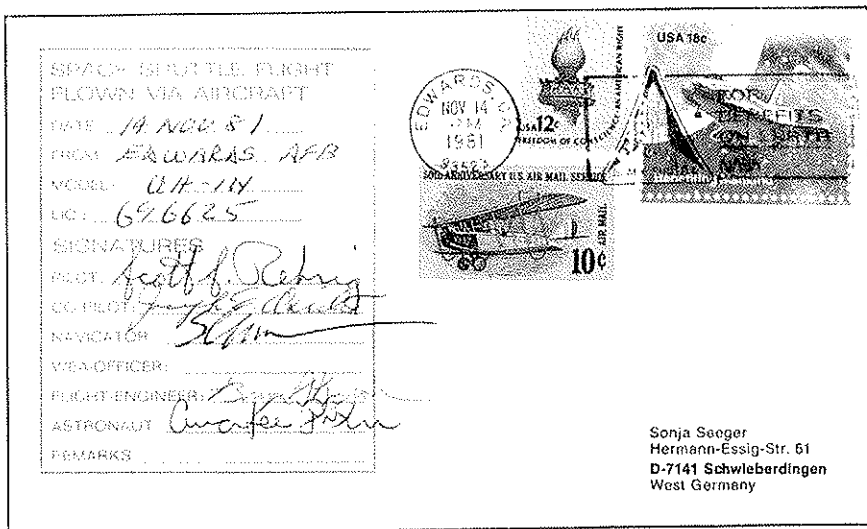 SPACE SHUTTLE FLIGHT
FLOWN VIA AIRCRAFT
DATE 14 NOV 81
FROM EDWARDS AFB
MODEL: UH-1N
LIC: 696625
SIGNATURES
PILOT: Scott J. Rehrig
CO-PILOT:
NAVICATOR:
WEA-OFFICER:
FLIGHT-ENGINEER:
ASTRONAUT
REMARKS
EDWARDS CA
NOV 14
PM
1981
93523
USA 12c
FREEDOM OF CONSCIENCE AN AMERICAN RIGHT
USA 18c
FOR
BENEFITS
ON EARTH
50TH ANNIVERSARY U.S. AIR MAIL SERVICE
10¢
AIR MAIL
Sonja Seeger
Hermann-Essig-Str. 61
D-7141 Schwieberdingen
West Germany